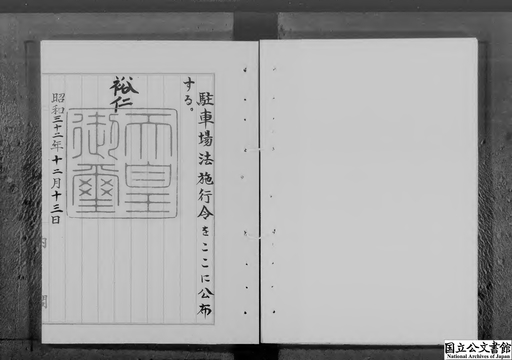 駐車場法施行令をここに公布
する。
裕仁
天皇
御璽
昭和三十二年十二月十三日
内閣
国立公文書館
National Archives of Japan